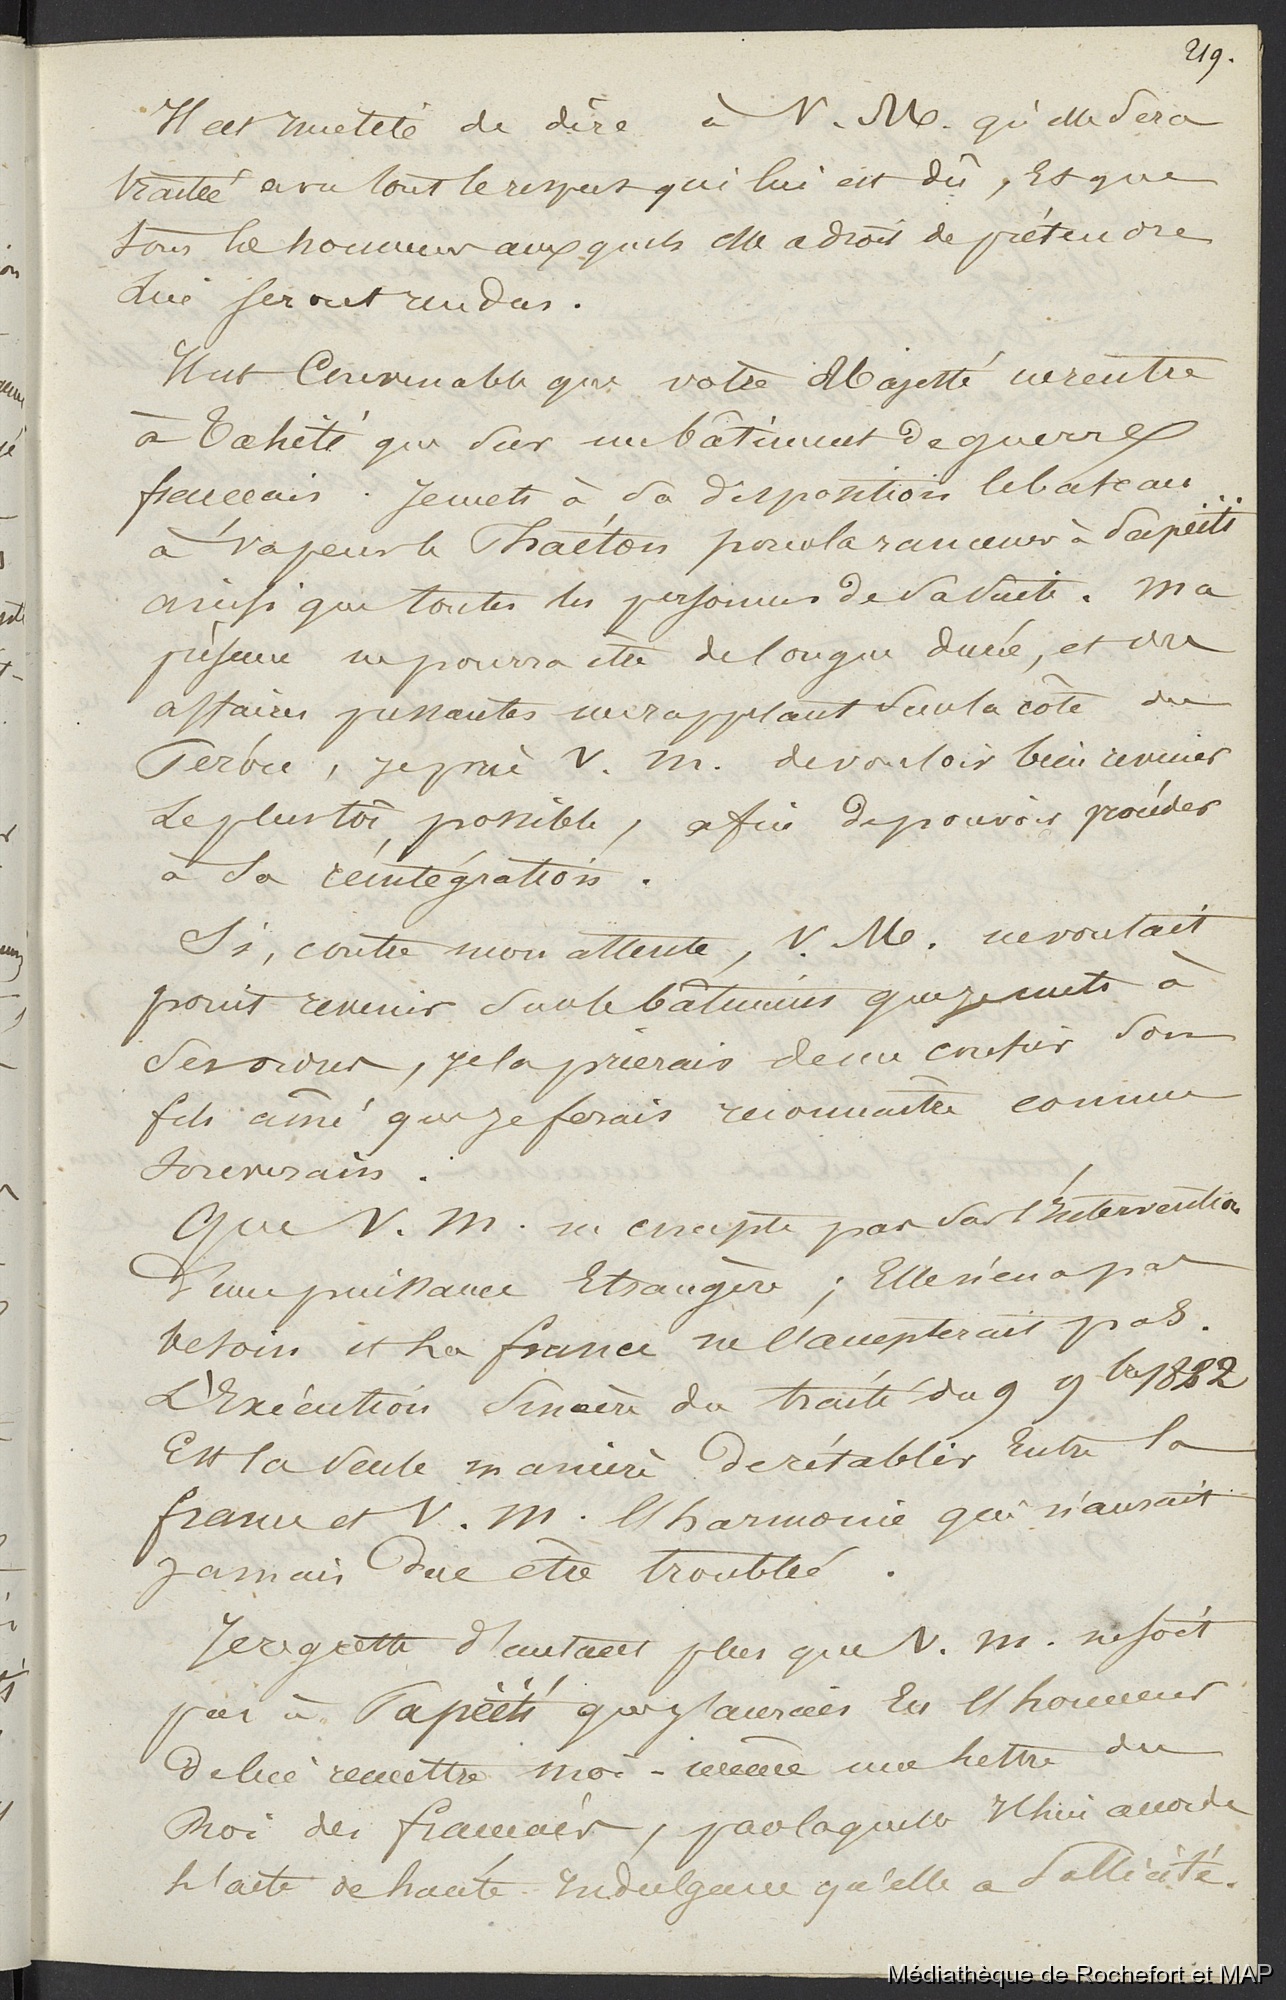 219.
Il est inutile de dire à V. M. qu'elle sera
traitée avec tout le respect qui lui est dû, Et que
tous les honneurs auxquels elle a droit de prétendre
Lui seront rendus.
Il est Convenable que votre Majesté ne rentre
à Tahiti que sur un bâtiment de guerre
français. Je mets à sa disposition le bateau
à vapeur le Phaéton pour la ramener à Papéiti
ainsi que toutes les personnes de sa suite. Ma
présence ne pourra être de longue durée, et des
affaires pressantes me rappelant sur la côte du
Pérou, je prie V. M. de vouloir bien revenir
le plustôt possible, afin de pouvoir procéder
à sa réintégration.
Si, contre mon attente, V. M. ne voulait
point revenir sur le bâtiment que je mets à
ses ordres, je la prierais de me confier son
fils ainé que je ferais reconnaître comme
Souverain.
Que V. M. ne compte pas sur l'Intervention
d'une puissance Etrangère; Elle n'en a pas
besoin et La france ne l'accepterait pas.
L'Exécution Sincère du traité du 9 9bre 1882
Est la seule manière de rétablir Entre la
france et V. M. l'harmonie qui n'aurait
jamais due être troublée.
Je regrette d'autant plus que V. M. ne soit
pas à Papéiti que j'aurais Eu l'honneur
de lui remettre moi-même une Lettre du
Roi des français, par laquelle Il lui accorde
L'acte de haute Indulgence qu'elle a Sollicité.
Médiathèque de Rochefort et MAP